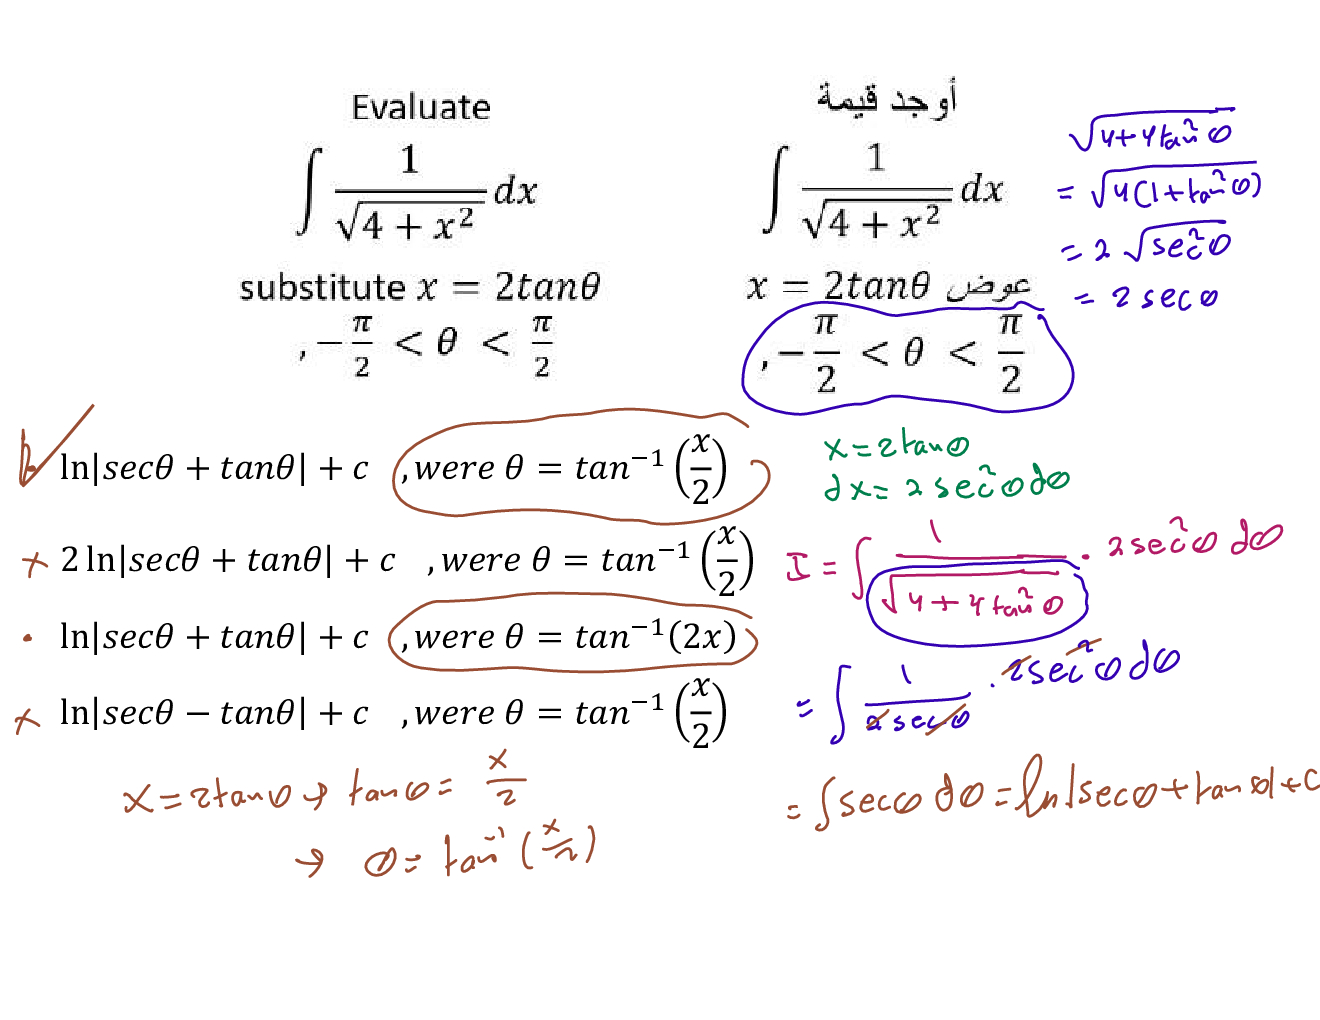 Evaluate
∫ 1/√(4 + x²) dx
substitute x = 2tanθ
, −π/2 < θ < π/2
أوجد قيمة
∫ 1/√(4 + x²) dx
عوض x = 2tanθ
, −π/2 < θ < π/2
√(4+4tan²θ)
= √(4(1+tan²θ))
= 2 √(sec²θ)
= 2 secθ
ln|secθ + tanθ| + c , were θ = tan⁻¹(x/2)
2 ln|secθ + tanθ| + c , were θ = tan⁻¹(x/2)
ln|secθ + tanθ| + c , were θ = tan⁻¹(2x)
ln|secθ − tanθ| + c , were θ = tan⁻¹(x/2)
x = 2tanθ → tanθ = x/2
→ θ = tan⁻¹(x/2)
x = 2tanθ
dx = 2 sec²θ dθ
I = ∫ 1/√(4 + 4tan²θ) · 2sec²θ dθ
= ∫ 1/(2secθ) · 2sec²θ dθ
= ∫ secθ dθ = ln|secθ + tanθ| + c